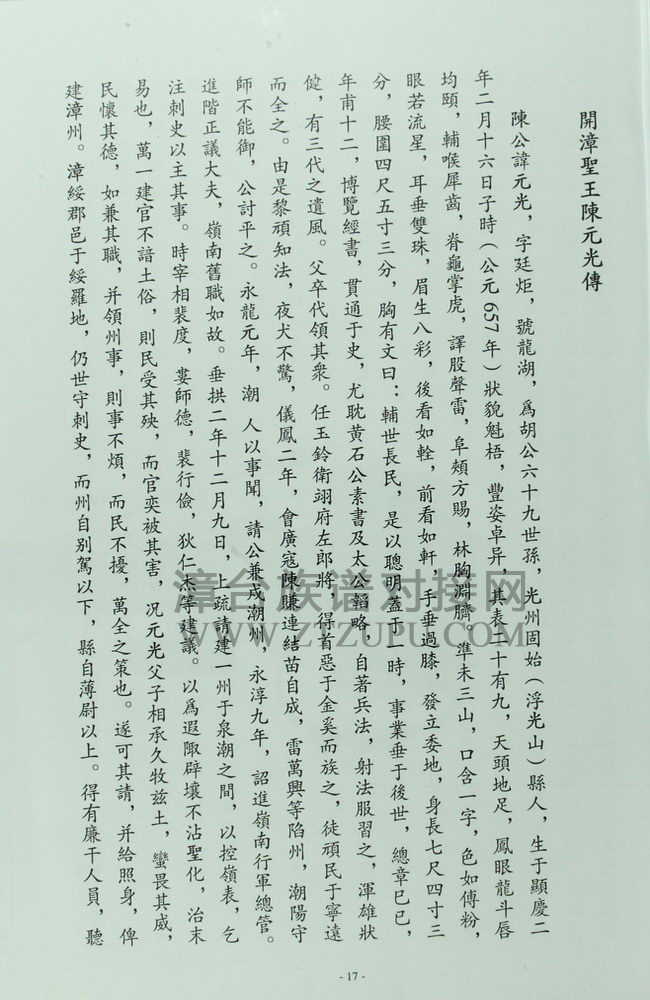 開漳聖王陳元光傳
陳公諱元光，字廷炬，號龍湖，爲胡公六十九世孫，光州固始（浮光山）縣人，生于顯慶二
年二月十六日子時（公元657年）狀貌魁梧，豐姿卓异，其表二十有九，天頭地足，鳳眼龍斗唇
均頤，輔喉犀齒，脊龜掌虎，譯股聲雷，阜頰方賜，林胸淵臍。準未三山，口含一字，色如傅粉，
眼若流星，耳垂雙珠，眉生八彩，後看如輇，前看如軒，手垂過膝，發立委地，身長七尺四寸三
分，腰圍四尺五寸三分，胸有文曰：輔世長民，是以聰明蓋于一時，事業垂于後世，總章巳巳，
年甫十二，博覽經書，貫通于史，尤耽黄石公素書及太公韜略，自著兵法，射法服習之，渾雄狀
健，有三代之遺風。父卒代領其衆。任玉鈴衛翊府左郎將，得首惡于金奚而族之，徒頑民于寧遠
而全之。由是黎頑知法，夜犬不驚，儀鳳二年，會廣寇陳賺連結苗自成，雷萬興等陷州，潮陽守
師不能御，公討平之。永龍元年，潮 人以事聞，請公兼戍潮州，永淳九年，詔進嶺南行軍總管。
進階正議大夫，嶺南舊職如故。垂拱二年十二月九日，上疏請建一州于泉潮之間，以控嶺表，乞
注刺史以主其事。時宰相裴度，婁師德，裴行儉，狄仁杰等建議。以爲遐陬辟壤不沾聖化，治末
易也，萬一建官不諳土俗，則民受其殃，而官奕被其害，况元光父子相承久牧兹土，蠻畏其威，
民懷其德，如兼其職，并領州事，則事不煩，而民不擾，萬全之策也。遂可其請，并給照身，俾
建漳州。漳綏郡邑于綏羅地，仍世守刺史，而州自别駕以下，縣自薄尉以上。得有廉干人員，聽
漳台族谱对接网
WWW.ZTZUPU.COM
- 17 -